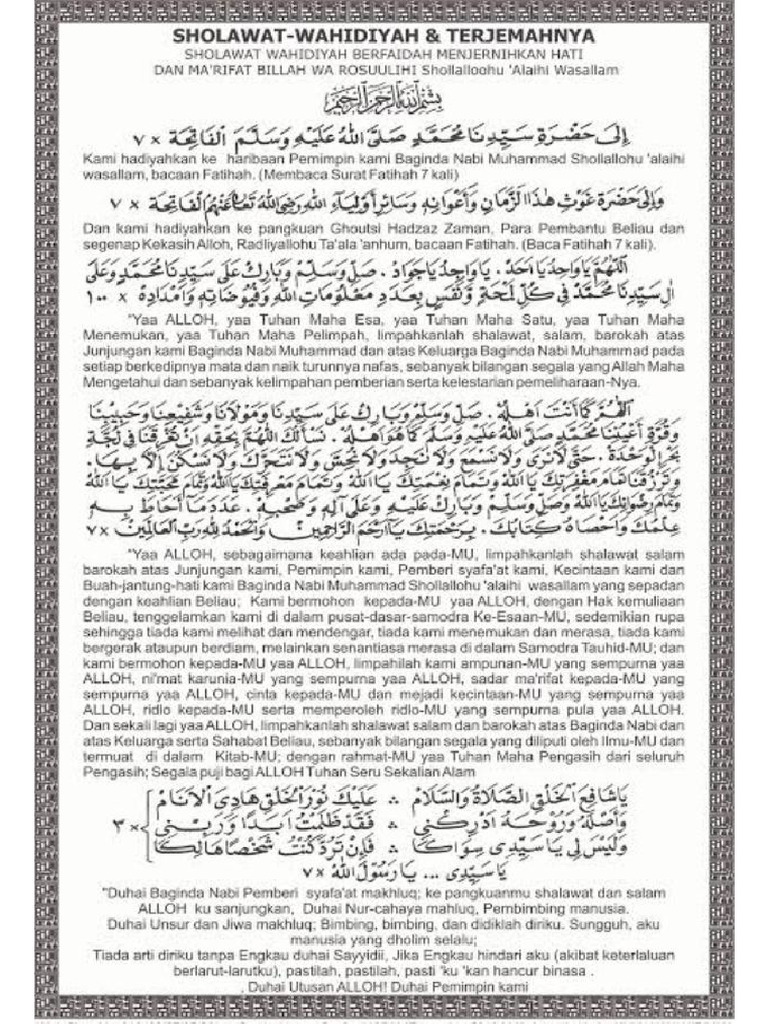 SHOLAWAT-WAHIDIYAH & TERJEMAHNYA
SHOLAWAT WAHIDIYAH BERFAIDAH MENJERNIHKAN HATI
DAN MA'RIFAT BILLAH WA ROSUULIHI Shollalloohu 'Alaihi Wasallam
بِسْمِ اللهِ الرَّحْمٰنِ الرَّحِيْمِ
إِلَى حَضْرَةِ سَيِّدِنَا مُحَمَّدٍ صَلَّى اللهُ عَلَيْهِ وَسَلَّمَ الْفَاتِحَة × ٧
Kami hadiyahkan ke haribaan Pemimpin kami Baginda Nabi Muhammad Shollallohu 'alaihi
wasallam, bacaan Fatihah. (Membaca Surat Fatihah 7 kali)
وَإِلَى حَضْرَةِ غَوْثِ هٰذَا الزَّمَانِ وَأَعْوَانِهِ وَسَائِرِ أَوْلِيَاءِ اللهِ رَضِيَ اللهُ تَعَالَى عَنْهُمُ الْفَاتِحَة × ٧
Dan kami hadiyahkan ke pangkuan Ghoutsi Hadzaz Zaman, Para Pembantu Beliau dan
segenap Kekasih Alloh, Radliyallohu Ta'ala 'anhum, bacaan Fatihah. (Baca Fatihah 7 kali).
اَللّٰهُمَّ يَا وَاحِدُ يَا أَحَدْ. يَا وَاجِدُ يَا جَوَادْ. صَلِّ وَسَلِّمْ وَبَارِكْ عَلَى سَيِّدِنَا مُحَمَّدٍ وَعَلَى
اٰلِ سَيِّدِنَا مُحَمَّدْ فِي كُلِّ لَمْحَةٍ وَنَفَسٍ بِعَدَدِ مَعْلُومَاتِ اللهِ وَفُيُوضَاتِهِ وَأَمْدَادِهْ × ١٠٠
"Yaa ALLOH, yaa Tuhan Maha Esa, yaa Tuhan Maha Satu, yaa Tuhan Maha
Menemukan, yaa Tuhan Maha Pelimpah, limpahkanlah shalawat, salam, barokah atas
Junjungan kami Baginda Nabi Muhammad dan atas Keluarga Baginda Nabi Muhammad pada
setiap berkedipnya mata dan naik turunnya nafas, sebanyak bilangan segala yang Allah Maha
Mengetahui dan sebanyak kelimpahan pemberian serta kelestarian pemeliharaan-Nya.
اَللّٰهُمَّ كَمَا أَنْتَ أَهْلُهْ. صَلِّ وَسَلِّمْ وَبَارِكْ عَلَى سَيِّدِنَا وَمَوْلَانَا وَشَفِيْعِنَا وَحَبِيْبِنَا
وَقُرَّةِ أَعْيُنِنَا مُحَمَّدٍ صَلَّى اللهُ عَلَيْهِ وَسَلَّمَ كَمَا هُوَ أَهْلُهْ. نَسْأَلُكَ اللّٰهُمَّ بِحَقِّهِ أَنْ تُغْرِقَنَا فِي لُجَّةِ
بَحْرِ الْوَحْدَةْ. حَتَّى لَا نَرَى وَلَا نَسْمَعَ وَلَا نَجِدَ وَلَا نُحِسَّ وَلَا نَتَحَرَّكَ وَلَا نَسْكُنَ إِلَّا بِهَا.
وَتَرْزُقَنَا تَمَامَ مَغْفِرَتِكَ يَا اَللهُ وَتَمَامَ نِعْمَتِكَ يَا اَللهُ وَتَمَامَ مَعْرِفَتِكَ يَا اَللهُ وَتَمَامَ مَحَبَّتِكَ يَا اَللهُ
وَتَمَامَ رِضْوَانِكَ يَا اَللهُ وَصَلِّ وَسَلِّمْ وَبَارِكْ عَلَيْهِ وَعَلَى آلِهِ وَصَحْبِهْ. عَدَدَ مَا أَحَاطَ بِهِ
عِلْمُكَ وَأَحْصَاهُ كِتَابُكْ. بِرَحْمَتِكَ يَا أَرْحَمَ الرَّاحِمِيْنْ وَالْحَمْدُ لِلّٰهِ رَبِّ الْعَالَمِيْنْ × ٧
"Yaa ALLOH, sebagaimana keahlian ada pada-MU, limpahkanlah shalawat salam
barokah atas Junjungan kami, Pemimpin kami, Pemberi syafa'at kami, Kecintaan kami dan
Buah-jantung-hati kami Baginda Nabi Muhammad Shollallohu 'alaihi wasallam yang sepadan
dengan keahlian Beliau; Kami bermohon kepada-MU yaa ALLOH, dengan Hak kemuliaan
Beliau, tenggelamkan kami di dalam pusat-dasar-samodra Ke-Esaan-MU, sedemikian rupa
sehingga tiada kami melihat dan mendengar, tiada kami menemukan dan merasa, tiada kami
bergerak ataupun berdiam, melainkan senantiasa merasa di dalam Samodra Tauhid-MU; dan
kami bermohon kepada-MU yaa ALLOH, limpahilah kami ampunan-MU yang sempurna yaa
ALLOH, ni'mat karunia-MU yang sempurna yaa ALLOH, sadar ma'rifat kepada-MU yang
sempurna yaa ALLOH, cinta kepada-MU dan mejadi kecintaan-MU yang sempurna yaa
ALLOH, ridlo kepada-MU serta memperoleh ridlo-MU yang sempurna pula yaa ALLOH.
Dan sekali lagi yaa ALLOH, limpahkanlah shalawat salam dan barokah atas Baginda Nabi dan
atas Keluarga serta Sahabat Beliau, sebanyak bilangan segala yang diliputi oleh Ilmu-MU dan
termuat di dalam Kitab-MU; dengan rahmat-MU yaa Tuhan Maha Pengasih dari seluruh
Pengasih; Segala puji bagi ALLOH Tuhan Seru Sekalian Alam
يَا شَافِعَ الْخَلْقِ الصَّلَاةُ وَالسَّلَامْ ∴ عَلَيْكَ نُوْرَ الْخَلْقِ هَادِيَ الْأَنَامْ
وَأَصْلَهُ وَرُوْحَهُ أَدْرِكْنِي ∴ فَقَدْ ظَلَمْتُ أَبَدًا وَرَبِّنِي × ٣
وَلَيْسَ لِي يَا سَيِّدِي سِوَاكَا ∴ فَإِنْ تَرُدَّ كُنْتُ شَخْصًا هَالِكًا
يَا سَيِّدِي ... يَا رَسُوْلَ اللهِ × ٧
"Duhai Baginda Nabi Pemberi syafa'at makhluq; ke pangkuanmu shalawat dan salam
ALLOH ku sanjungkan, Duhai Nur-cahaya mahluq, Pembimbing manusia.
Duhai Unsur dan Jiwa makhluq: Bimbing, bimbing, dan didiklah diriku. Sungguh, aku
manusia yang dholim selalu;
Tiada arti diriku tanpa Engkau duhai Sayyidii, Jika Engkau hindari aku (akibat keterlaluan
berlarut-larutku), pastilah, pastilah, pasti 'ku 'kan hancur binasa .
. Duhai Utusan ALLOH! Duhai Pemimpin kami